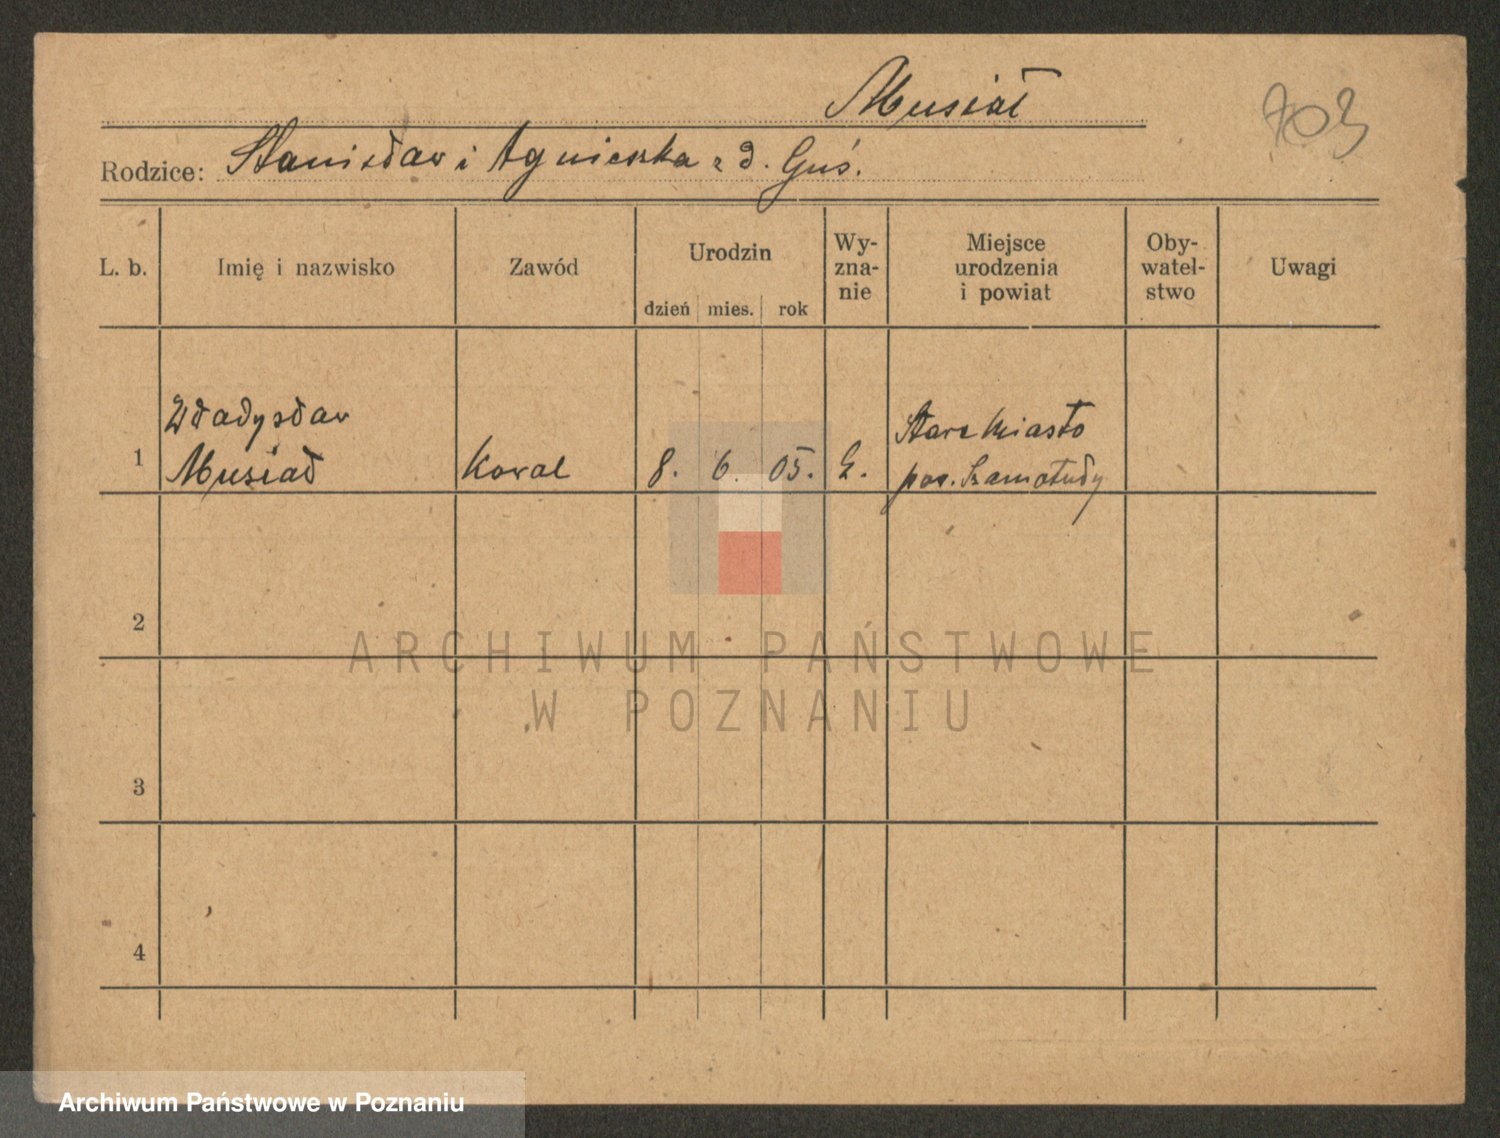 Musiał
703
Rodzice: Stanisław i Agnieszka z d. Guś.
L. b.
Imię i nazwisko
Zawód
Urodzin
dzień mies. rok
Wy-
zna-
nie
Miejsce
urodzenia
i powiat
Oby-
watel-
stwo
Uwagi
1
Władysław
Musiał
Kowal
8. 6. 05.
Stare Miasto
pow. Szamotuły
2
3
4
ARCHIWUM PAŃSTWOWE
W POZNANIU
Archiwum Państwowe w Poznaniu